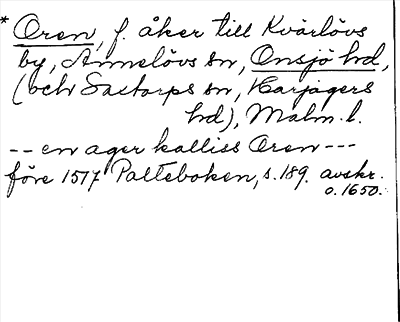 * Oren, f. åker till Kvärlövs
by, Annelövs sn, Onsjö hd,
(och Saxtorps sn, Harjagers
hd), Malm. l.
-- en ager kalliss Oren ---
före 1517 Palteboken, s. 189. avskr.
o. 1650.